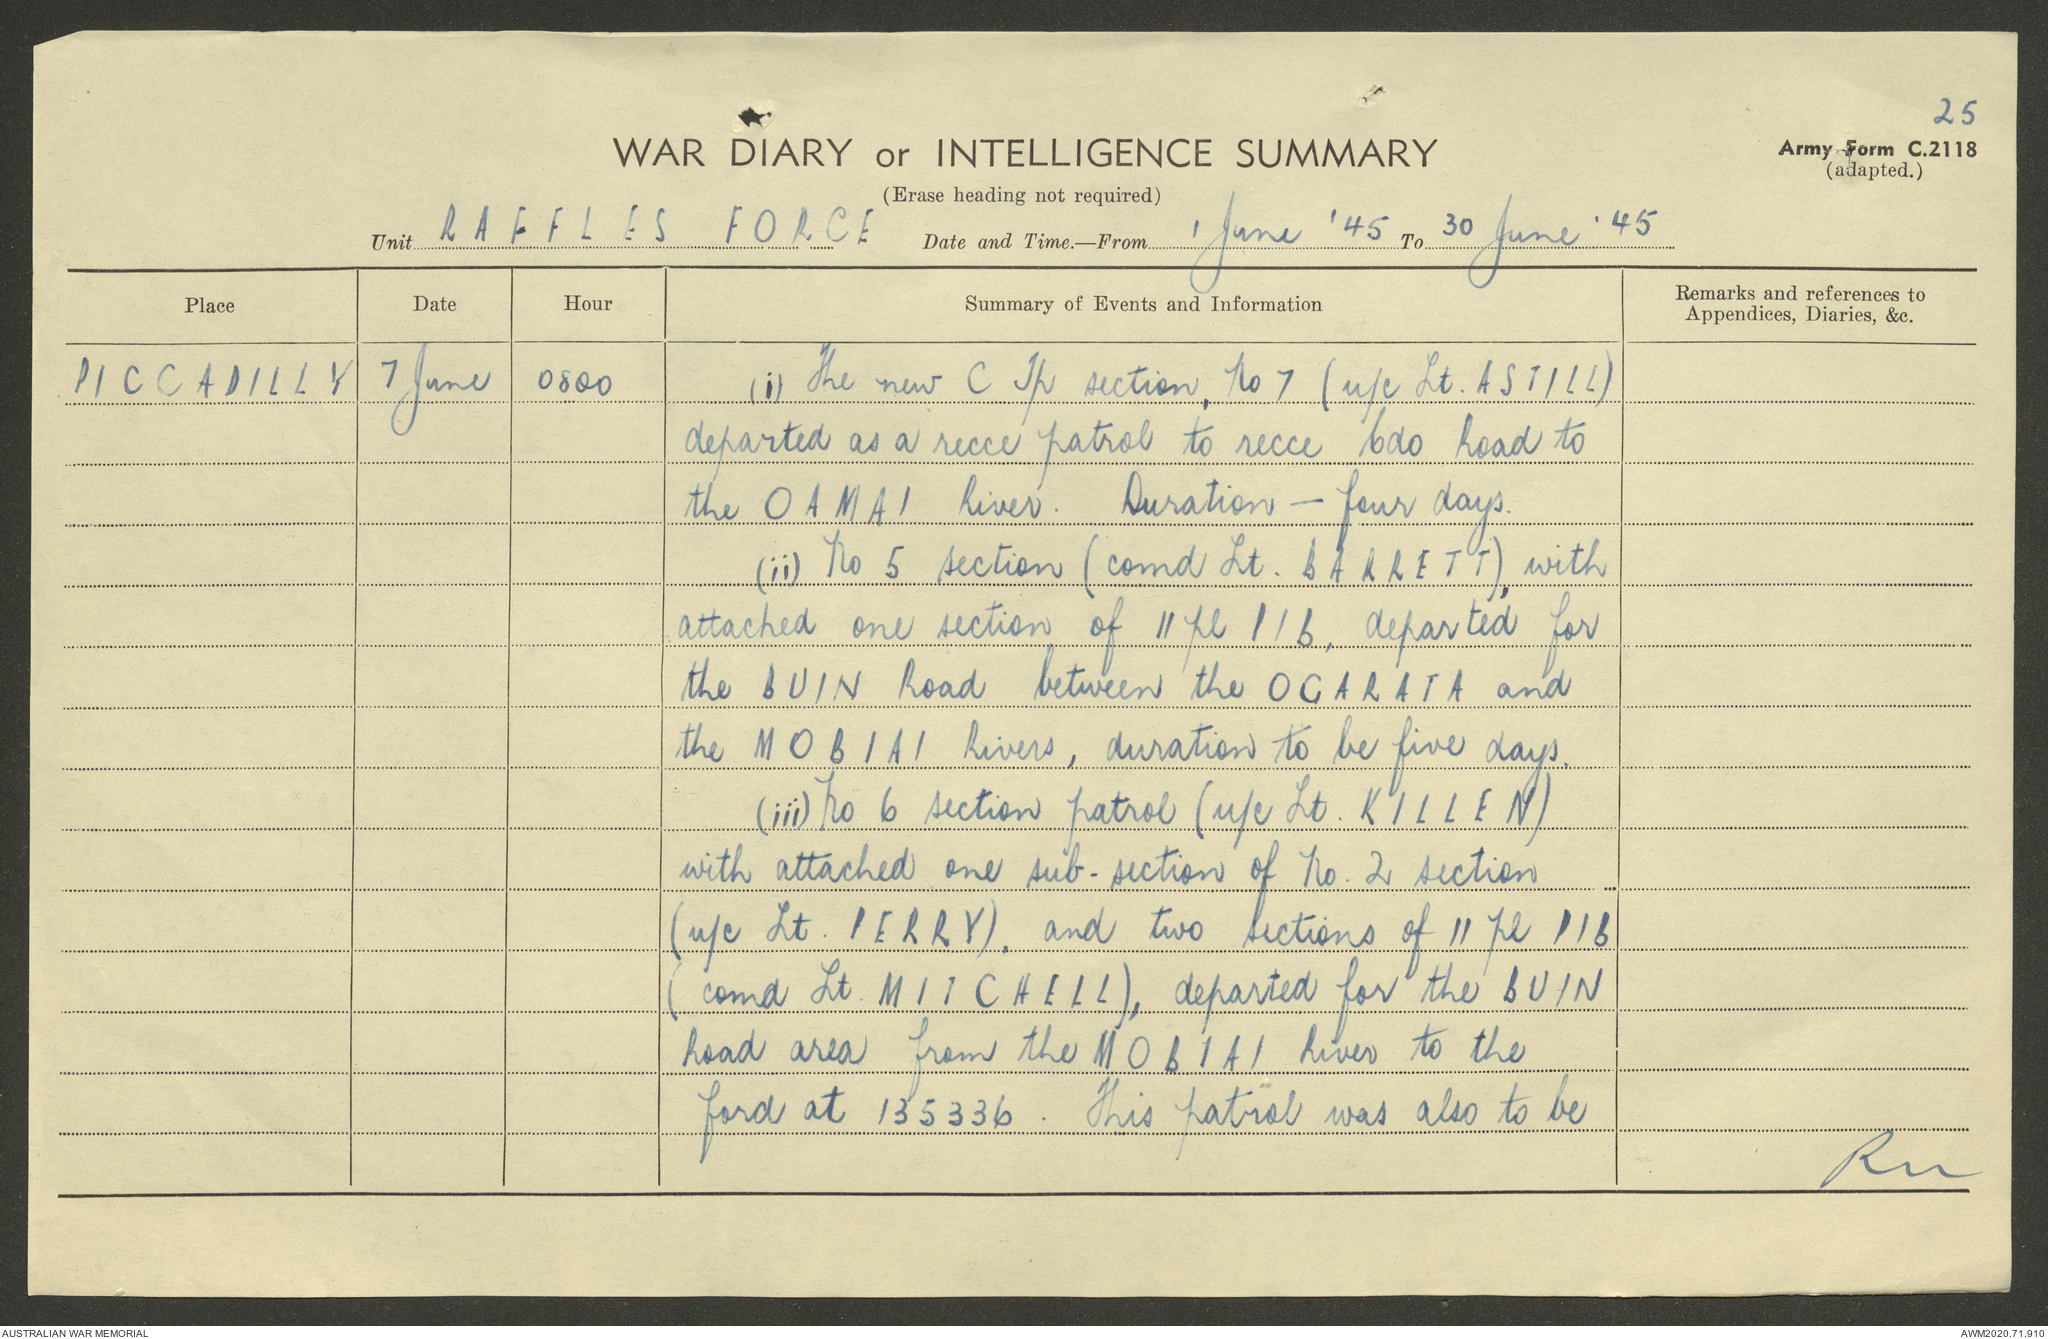 25
WAR DIARY or INTELLIGENCE SUMMARY
Army Form C.2118
(adapted.)
(Erase heading not required)
Unit RAFFLES FORCE Date and Time.—From 1 June '45 To 30 June '45
Place Date Hour Summary of Events and Information Remarks and references to
Appendices, Diaries, &c.
PICCADILLY 7 June 0800 (i) The new C Tp section, No 7 (u/c Lt. ASTILL)
departed as a recce patrol to recce Cdo Road to
the OAMAI River. Duration — four days.
(ii) No 5 section (comd Lt. BARRETT), with
attached one section of 11 pl PIB, departed for
the BUIN Road between the OGARATA and
the MOBIAI Rivers, duration to be five days.
(iii) No 6 section patrol (u/c Lt. KILLEN)
with attached one sub-section of No. 2 section
(u/c Lt. PERRY), and two sections of 11 pl PIB
(comd Lt. MITCHELL), departed for the BUIN
Road area from the MOBIAI River to the
ford at 135336. This patrol was also to be
AUSTRALIAN WAR MEMORIAL
AWM2020.71.910